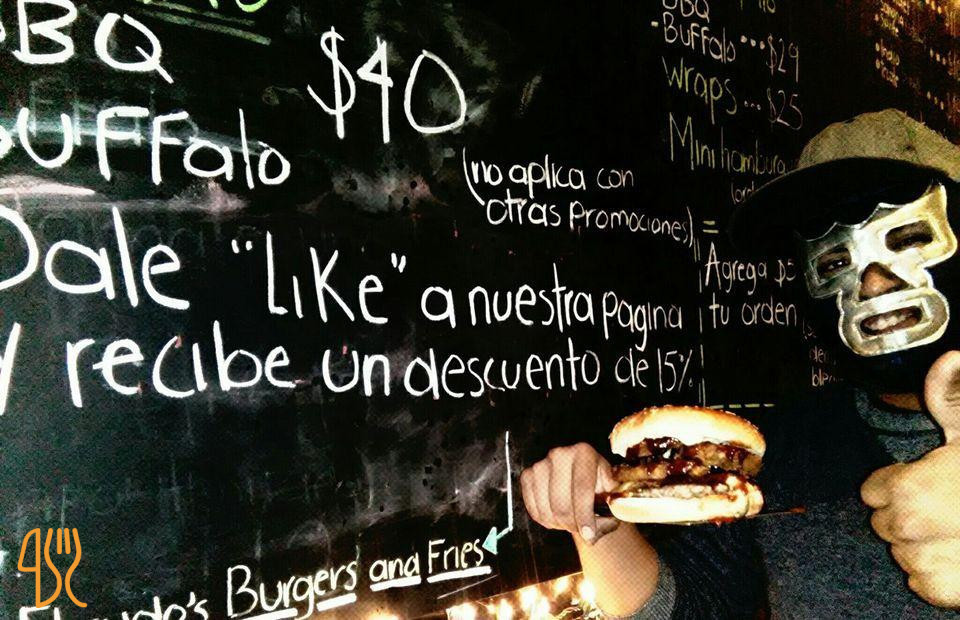 BBQ
Buffalo
$40
(no aplica con
otras promociones)
Dale "Like" a nuestra pagina
y recibe un descuento de 15%
Burgers and Fries
BBQ
-Buffalo ... $29
Wraps... $25
Mini hambur
=
Agrega $5
tu orden